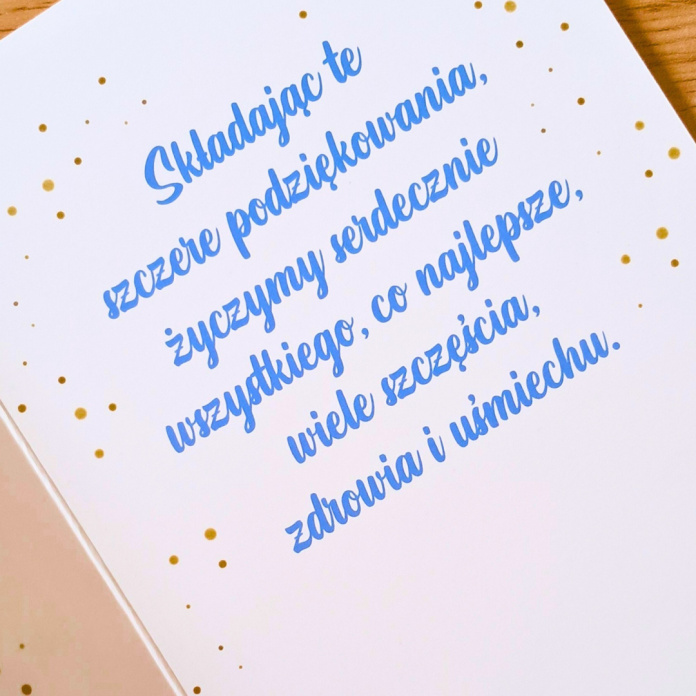 Składając te
szczere podziękowania,
życzymy serdecznie
wszystkiego, co najlepsze,
wiele szczęścia,
zdrowia i uśmiechu.